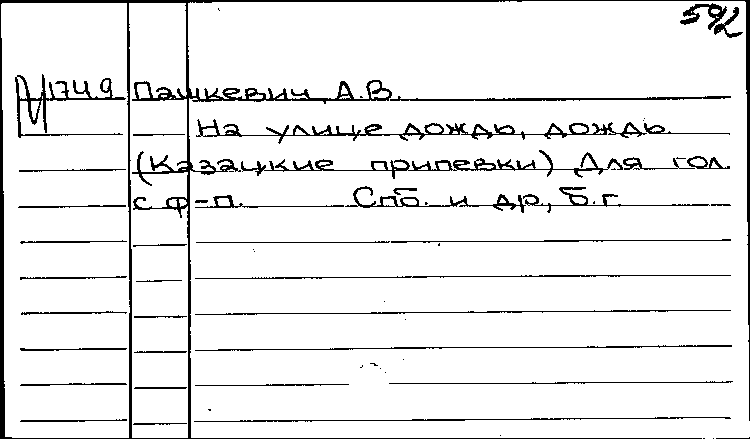 592
174.9 Пашкевич, А.В.
На улице дождь, дождь.
(Казацкие припевки) Для гол.
с ф-п. Спб. и др., б.г.